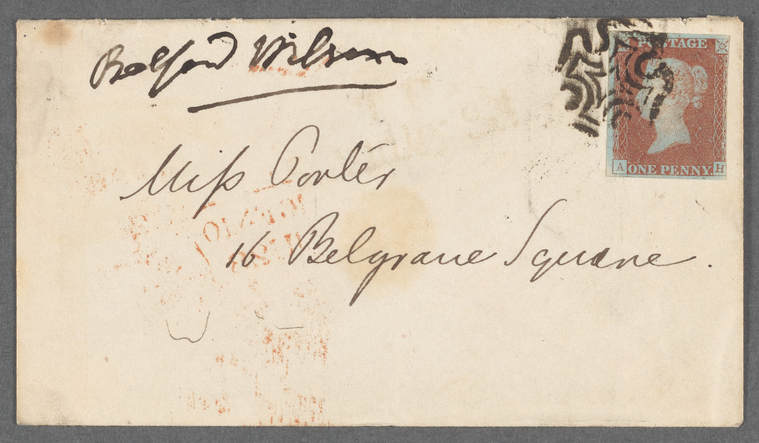 Belford Wilson
POSTAGE
A ONE PENNY H
Miss Porter
16 Belgrave Square.